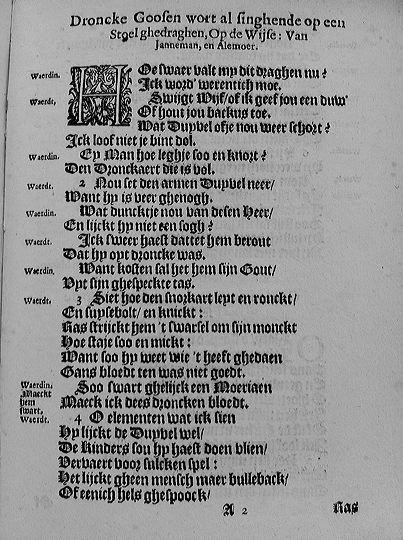 Droncke Goosen wort al singhende op een
Stoel ghedraghen, Op de Wijse: Van
Janneman, en Alemoer.
Waerdin. HOe swaer valt my dit draghen nu?
Ick word' werentich moe.
Waerdt, Swijgt Wijf/of ik geef jou een duw'
Of hout jou backus toe.
Wat Duyvel ofje nou weer schort?
Ick loof niet je bint dol.
Waerdin. Ey Man hoe leghje soo en knort?
Den Dronckaert die is vol.
Waerdt. 2 Nou set den armen Duyvel neer/
Want hy is veer ghenogh.
Waerdin. Wat duncktje nou van desen Heer/
En lijckt hy niet een sogh?
Waerdt. Ick sweer haest dattet hem berout
Dat hy opt droncke was.
Waerdin. Want kosten sal het hem sijn Gout/
Uyt sijn ghespeckte tas.
Waerdt. 3 Siet hoe den snorkart leyt en ronckt/
En suysebolt/ en knickt:
Kas strijckt hem 't swarsel om sijn monckt
Hoe staje soo en mickt:
Want soo hy weet wie 't heeft ghedaen
Gans bloedt ten was niet goedt.
Waerdin. Soo swart ghelijck een Moeriaen
Maeckt hem swart. Maeck ick dees droncken bloedt.
Waerdt. 4 O elementen wat ick sien
Hy lijckt de Duyvel wel/
De Kinders sou hy haest doen vlien/
Vervaert voor sulcken spel:
Het lijckt gheen mensch maer bulleback/
Of eenich hels ghespoock/
A 2 Kas